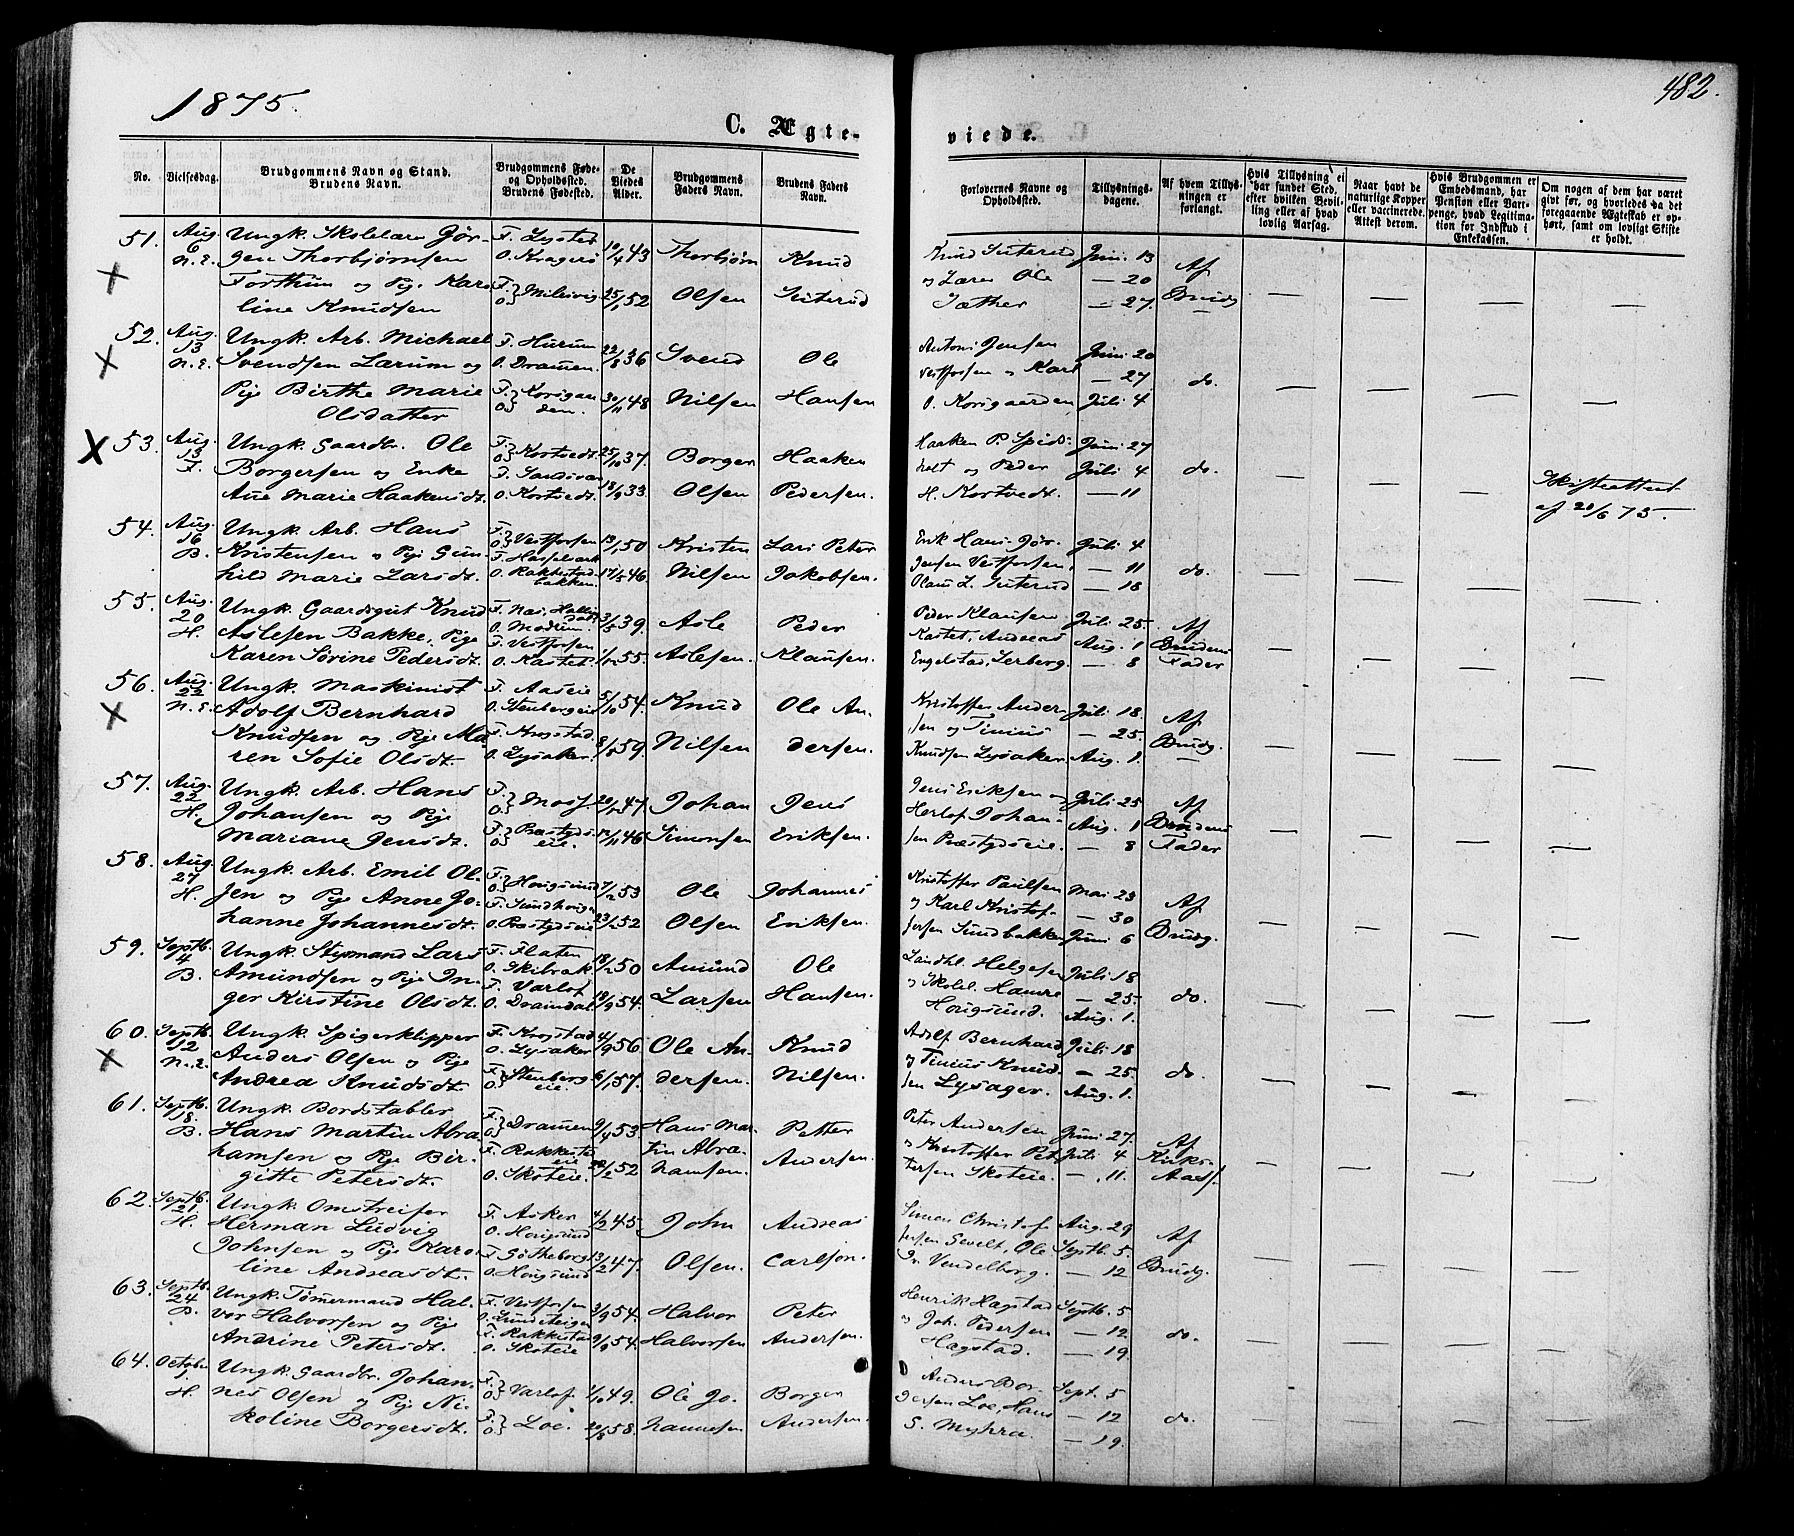 1875.
482.
C. Ægte-
viede.
No.
Vielsesdag.
Brudgommens Navn og Stand.
Brudens Navn.
Brudgommens Føde-
og Opholdssted.
Brudens Fødested.
De
Viedes
Alder.
Brudgommens
Faders Navn.
Brudens Faders
Navn.
Forlovernes Navne og
Opholdssted.
Tillysnings-
dagene.
Af hvem Tillys-
ningen er
forlangt.
Hvis Tillysning ei
har fundet Sted,
efter hvilken Bevil-
ling eller af hvad
lovlig Aarsag.
Naar havt de
naturlige Kopper
eller vaccinerede.
Attest derom.
Hvis Brudgommen er
Embedsmand, har
Pension eller Vart-
penge, hvad Legitima-
tion for Indskud i
Enkekassen.
Om nogen af dem har været
givt før, og hvorledes da det
foregaaende Ægteskab er op-
hørt, samt om lovligt Skifte
er holdt.
51. Aug. 6 N.E. Ungk. Skolelærer Jør-
gen Thorbjørnsen
Forthun og Pige Karo-
line Knudsen
O. Kragerø
10/4 43 25/1 52
Thorbjørn Olsen
Knud Seterud
Knud Seterud
og Lærer Ole
Sæther
Juni 13
— 20
— 27
Af Brudg.
52. Aug. 13 N.E. Ungk. Arb. Michael
Svendsen Lærum og
Pige Birthe Marie
Olsdatter
F. Hurum
O. Dramen.
F. O. Korsgaarden.
22/8 36 30/11 48
Svend Nilsen
Ole Hansen
Antoni Jensen
Vestfossen og Karl
O. Korsgaarden
Juni 20
— 27
Juli 4
do.
53. Aug. 13 F. Ungk. Gaardbr. Ole
Borgersen og Enke
Ane Marie Haakensdt.
F. O. Kortvedt
F. Sandsvær
O. Kortvedt.
25/10 37. 18/9 33.
Borger Olsen
Haaken Pedersen.
Haaken P. Spids-
holt og Peder
H. Kortvedt.
Juni 27
Juli 4
— 11
do.
Skifteattest
af 20/6 75.
54. Aug. 16 B. Ungk. Arb. Hans
Kristensen og Pige Gun-
hild Marie Larsdt.
F. O. Vestfossen
F. Hasselverk
O. Rakkestad-
bakken
13/1 50 17/5 46
Kristen Nilsen
Lars Peter Jakobsen.
Erik Hans Jør.
Jensen Vestfossen,
Olaus L. Seterud
Juli 4
— 11
— 18
do.
55. Aug. 20 H. Ungk. Gaardsgut Knud
Aslesen Bakke, Pige
Karen Sørine Pedersdt.
F. Næs, Hallingdal
O. Modum.
F. Vestfossen
O. Kastet.
3/5 39. 1/12 55.
Asle Aslesen.
Peder Klausen.
Peder Klausen
Kastet, Andreas
Engelstad, Lerberg.
Juli 25.
Aug. 1
— 8
Af Brudens Fader
56. Aug. 22 N.E. Ungk. Maskinist
Adolf Bernhard
Knudsen og Pige Ma-
ren Sofie Olsdt.
F. Aaseie
O. Stenbergeie
F. Krogstad.
O. Lysaker.
5/10 54.
Knud Nilsen
Ole Andersen.
Kristoffer Ander-
sen og Tinius
Knudsen Lysaker
Juli 18.
— 25.
Aug. 1.
Af Brudg.
57. Aug. 22 H. Ungk. Arb. Hans
Johansen og Pige
Mariane Jensdt.
F. O. Moss.
F. O. Præstgdseie.
20/12 47 12/11 46
Johan Simonsen
Jens Eriksen.
Jens Eriksen og
Herlof Johan-
sen Præstgdseie.
Juli 25
Aug. 1
— 8
Af Brudens Fader
58. Aug. 27 H. Ungk. Arb. Emil Ol-
sen og Pige Anne Jo-
hanne Johannesdt.
F. O. Hougsund
O. Præstgdseie
7/2 53
Ole Olsen
Johannes Eriksen.
Kristoffer Paulsen
og Karl Kristof-
fersen Sundbakken
Mai 23
— 30
Juni 6
Af Brudg.
59. Septb. 4 B. Ungk. Styrmand Lars
Amundsen og Pige In-
ger Kirstine Olsdt.
F. Flaten
O. Skibrak
F. Varlo
O. Dramdal
18/2 50 18/9 54.
Amund Larsen
Ole Hansen.
Landhl. Helgesen
og Skolel. Hamre
Hougsund.
Juli 18
— 25.
Aug. 1.
do.
60. Septb. 12 N.E. Ungk. Spigerklipper
Anders Olsen og Pige
Andrea Knudsdt.
F. Krogstad
O. Lysaker
F. O. Stenberg-
eie
4/9 56 6/1 57.
Ole Andersen.
Knud Nilsen.
Adolf Bernhard
og Tinius Knud-
sen Lysager.
Juli 18
— 25.
Aug. 1.
do.
61. Septb. 18. B. Ungk. Bordstabler
Hans Martin Abra-
hamsen og Pige Bir-
gitte Petersdt.
F. O. Dramen
F. Rakkestad
eie
O. Skoteie.
9/4 53. 52
Hans Martin Abrahamsen.
Petter Andersen.
Peter Andersen
og Kristoffer Pet-
tersen Skoteie.
Juni 27.
Juli 4
— 11.
Af
62. Septb. 21. H. Ungk. Omstreifer
Herman Ludvig
Johnsen og Pige Karo-
line Andreasdt.
F. Asker
O. Hougsund
F. Gøtheborg
O. Hougsund
4/2 45. 13/2 47.
John Olsen.
Andreas Carlson.
Simon Christof-
fersen Sevelt, Ole
Vendelborg.
Aug. 29
Septb. 5.
— 12
Af Brudg.
63. Septb. 24 B. Ungk. Tømermand Hal-
vor Halvorsen og Pige
Andrine Petersdt.
F. Vestfossen
O. Sundsteigen
F. Rakkestad
O. Skoteie
3/9 54. 9/9 54.
Halvor Halvorsen
Peter Andersen.
Henrik Hagstad
og Joh. Pedersen
Hagstad.
Septb. 5
— 12.
— 19.
do.
64. Octobr. 1. H. Ungk. Gaardbr. Johan-
nes Olsen og Pige Ni-
koline Borgersdt.
F. O. Varlo.
F. O. Loe.
49. 20/8 58.
Ole Johannesen
Borger Andersen.
Anders Bor-
gersen Loe, Hans
S. Myhra.
Sept. 5
— 12
— 19.
do.